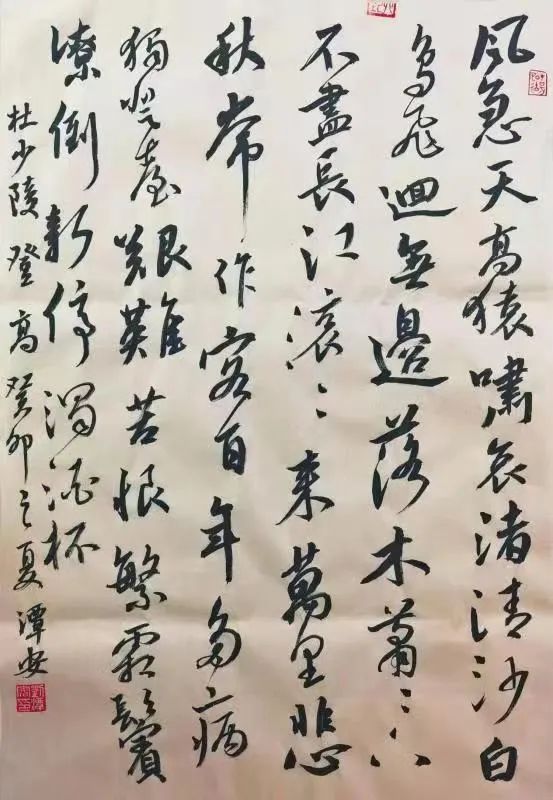 風急天高猿嘯哀渚清沙白
鳥飛迴無邊落木蕭〻下
不盡長江滾〻來萬里悲
秋常作客百年多病
獨登臺艱難苦恨繁霜鬢
潦倒新停濁酒杯
杜少陵登高癸卯之夏潭安